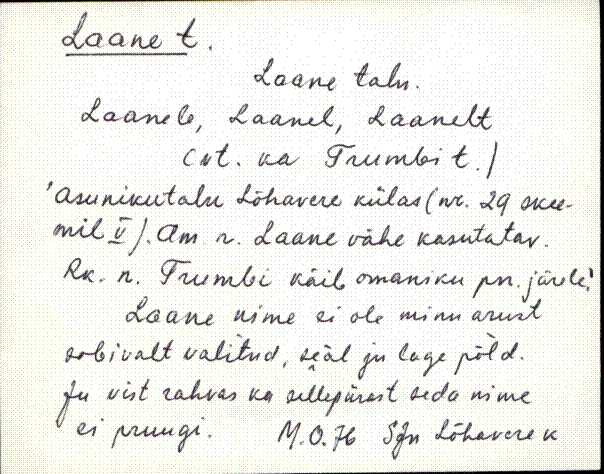 Laane t.
Laane talu.
Laanele, Laanel, Laanelt
(vt. ka Trumbi t.)
'asunikutalu Lõhavere külas (nr. 29 skee-
mil V). Am. n. Laane vähe kasutatav.
Rk. n. Trumbi käib omaniku pn. järele.'
Laane nime ei ole minu arust
sobivalt valitud, seäl ju lage põld.
Ju vist rahvas ka sellepärast seda nime
ei pruugi. M.O. 76 SJn Lõhavere k